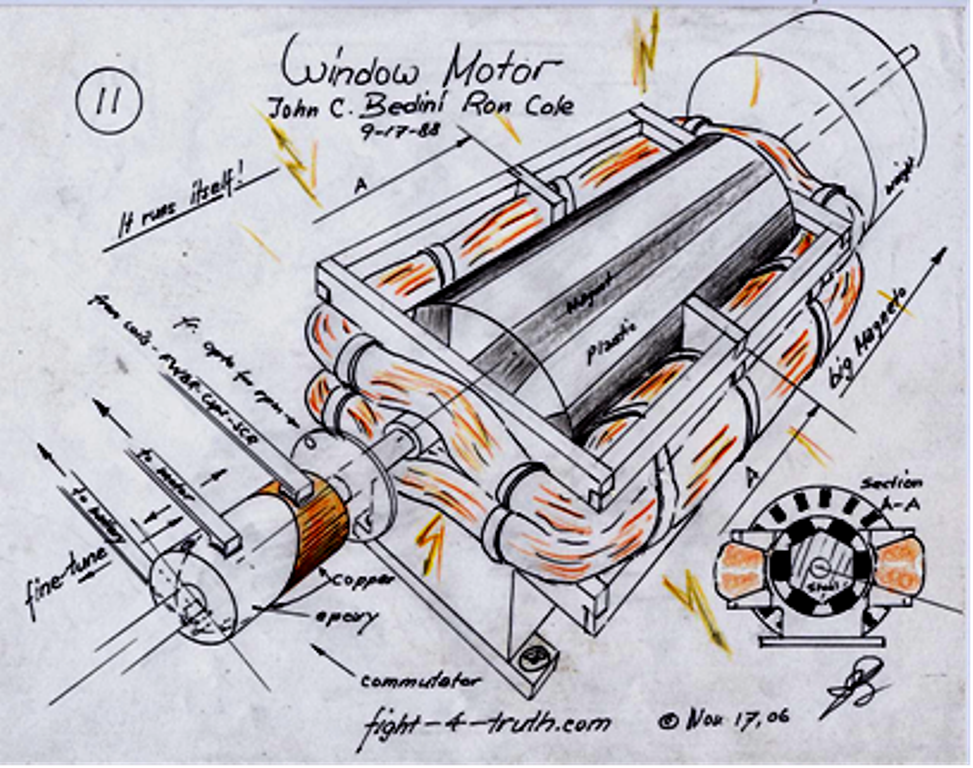 11
Window Motor
John C. Bedini Ron Cole
9-17-88
It runs itself!
A
weight
from coils - FWBR-Cap-SCR
to motor
to battery
fine-tune
Magnet
Plastic
big Magneto
A
Section
A-A
Steel
copper
epoxy
commutator
fight-4-truth.com
© Nov 17, 06